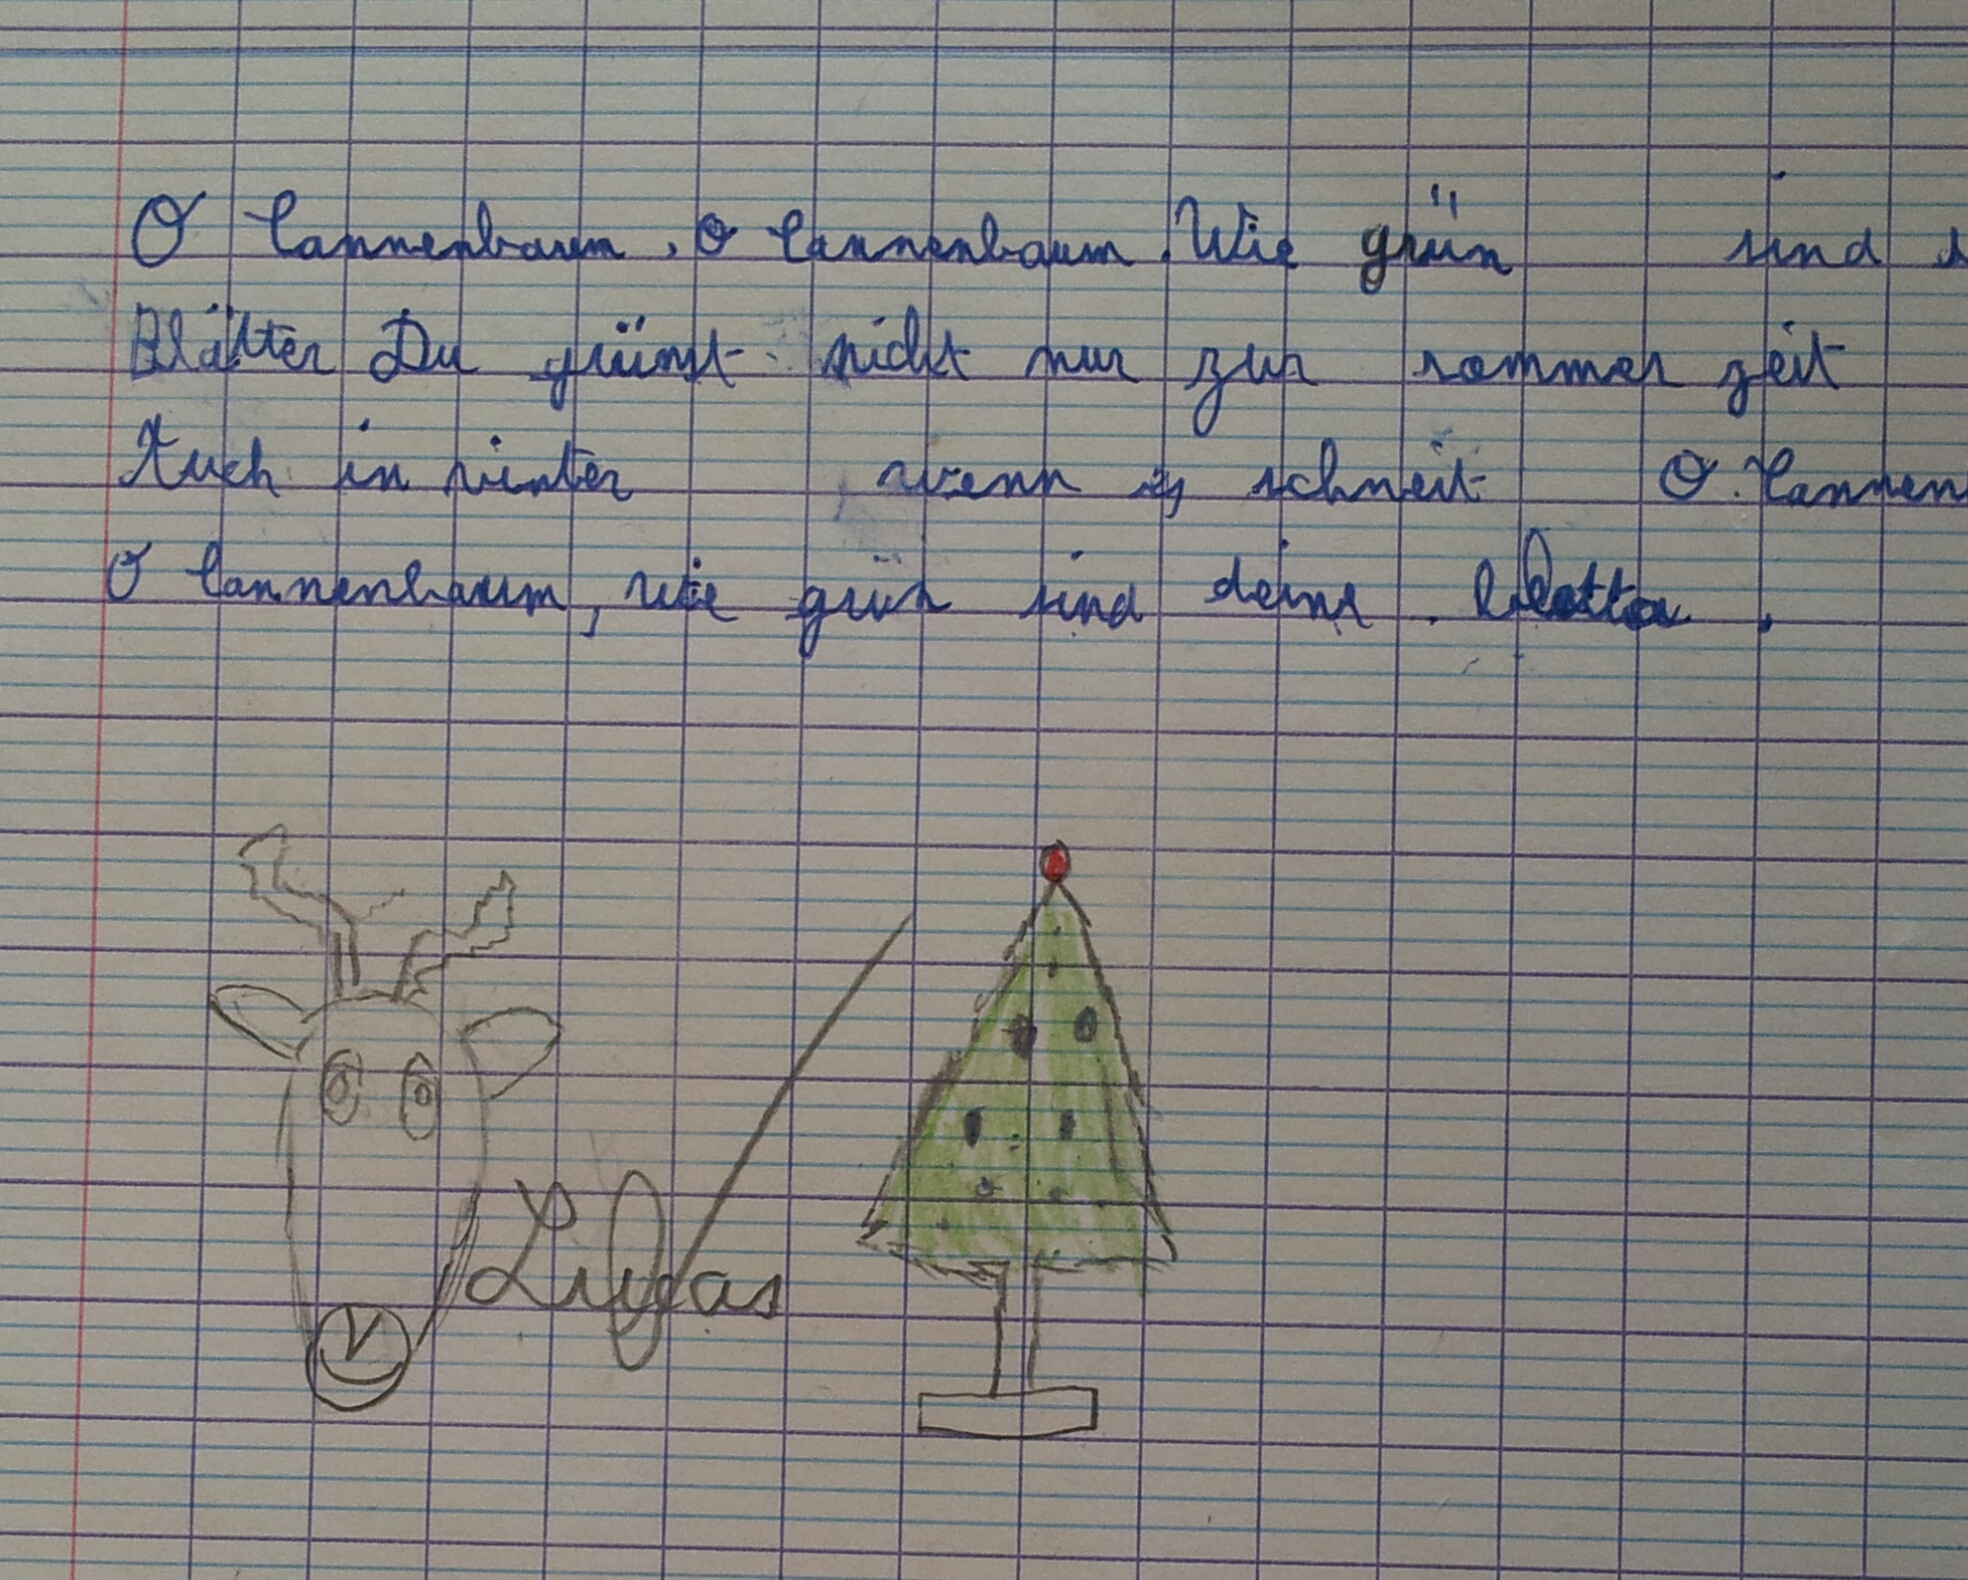 O Tannenbaum, o Tannenbaum, Wie grün sind
Blätter Du grünst nicht nur zur sommer zeit
Auch in winter wenn es schneit O Tannen
O Tannenbaum, wie grün sind deine
Lukas